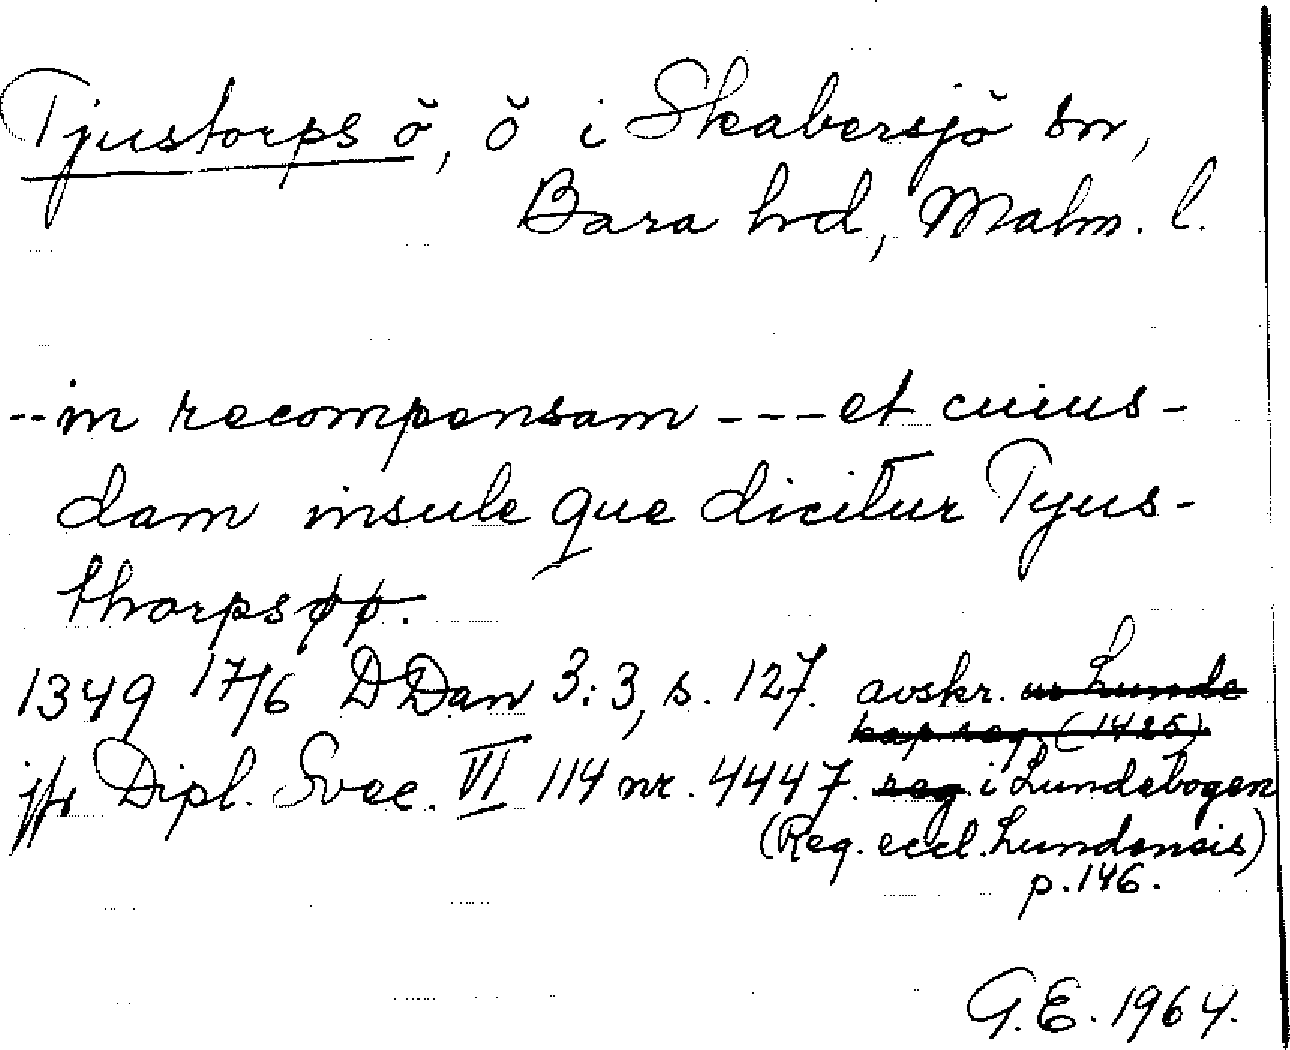 Tjustorps ö, ö i Skabersjö sn,
Bara hd, Malm. l.
-- in recompensam --- et cuius-
dam insule que dicitur Tyus-
thorpsøø.
1349 17/6 DDan 3:3, s. 127. avskr. ur Lunde
kap. reg. (1425)
jfr Dipl. Svec. VI 114 nr. 4447. reg. i Lundebogen
(Reg. eccl. Lundensis)
p. 146.
G.E. 1964.